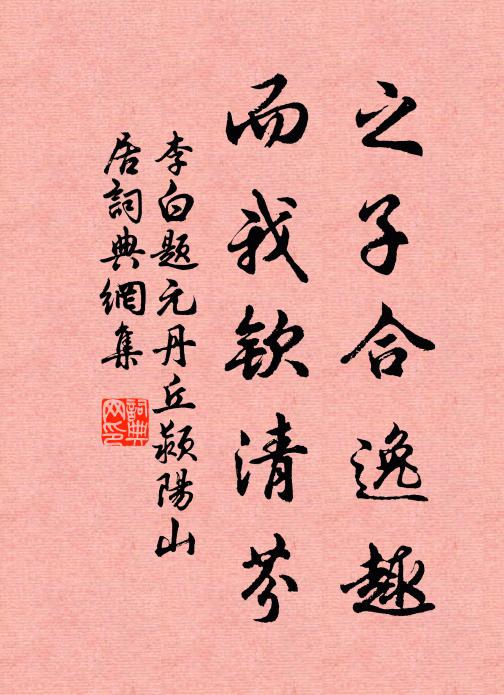 之子合逸趣
而我欽清芬
李白題元丹丘颍陽山
居詞典網集
詞典
网印